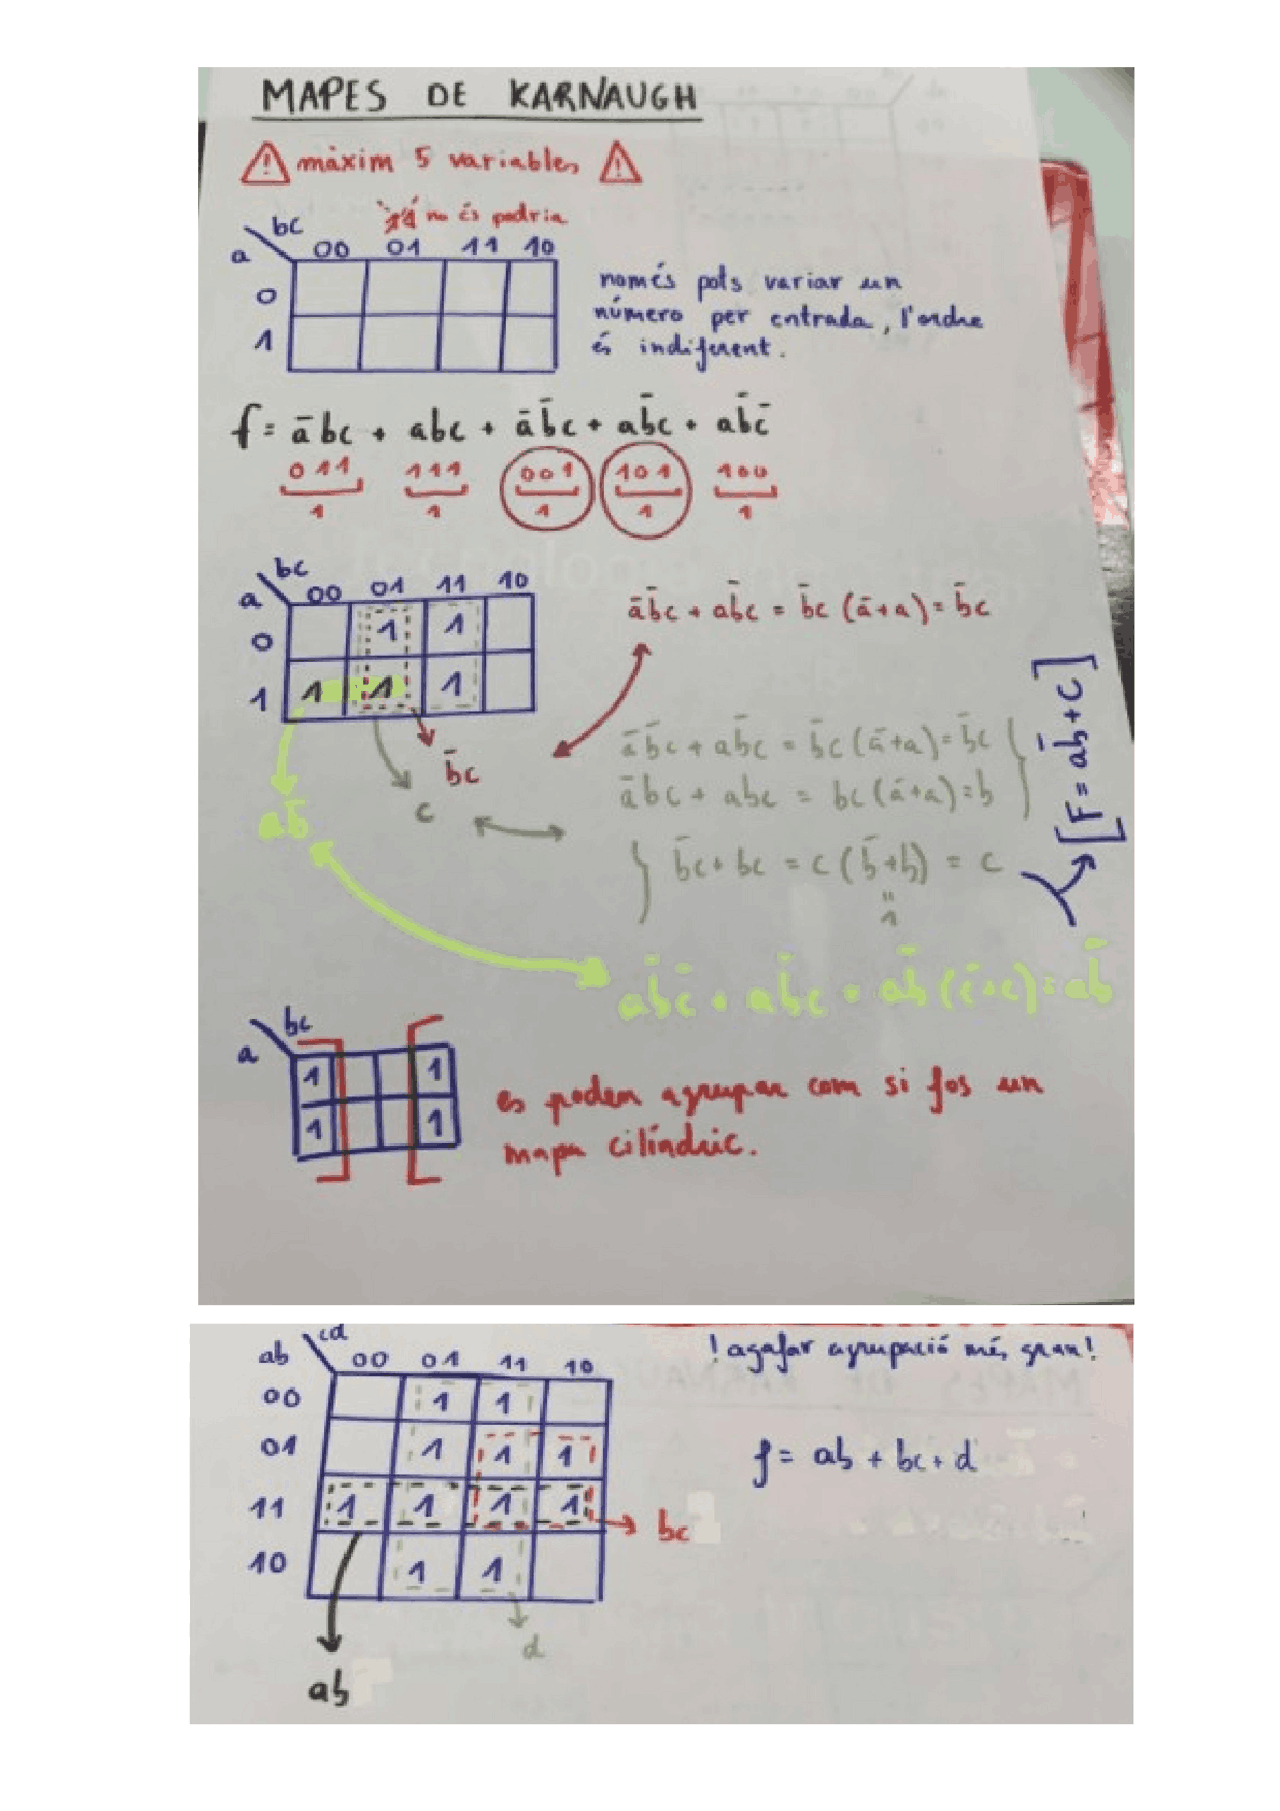 MAPES DE KARNAUGH
màxim 5 variables
no és podria
bc
a
00 01 11 10
0
1
només pots variar un
número per entrada, l'ordre
és indiferent.
f = a̅bc + abc + a̅b̅c + ab̅c + ab̅c̅
011 111 001 101 100
1 1 1 1 1
bc
a
00 01 11 10
0 1 1
1 1 1 1
a̅b̅c + ab̅c = b̅c (a̅+a) = b̅c
b̅c
c
ab̅
a̅b̅c + ab̅c = b̅c (a̅+a) = b̅c
a̅bc + abc = bc (a̅+a) = b
b̅c + bc = c (b̅+b) = c
"
1
[F = ab̅ + c]
ab̅c̅ + ab̅c = ab̅ (c̅+c) = ab̅
bc
a
1 1
1 1
es poden agrupar com si fos un
mapa cilíndric.
cd
ab
00 01 11 10
00 1 1
01 1 1 1
11 1 1 1 1
10 1 1
bc
d
ab
! agafar agrupació més gran!
f = ab + bc + d